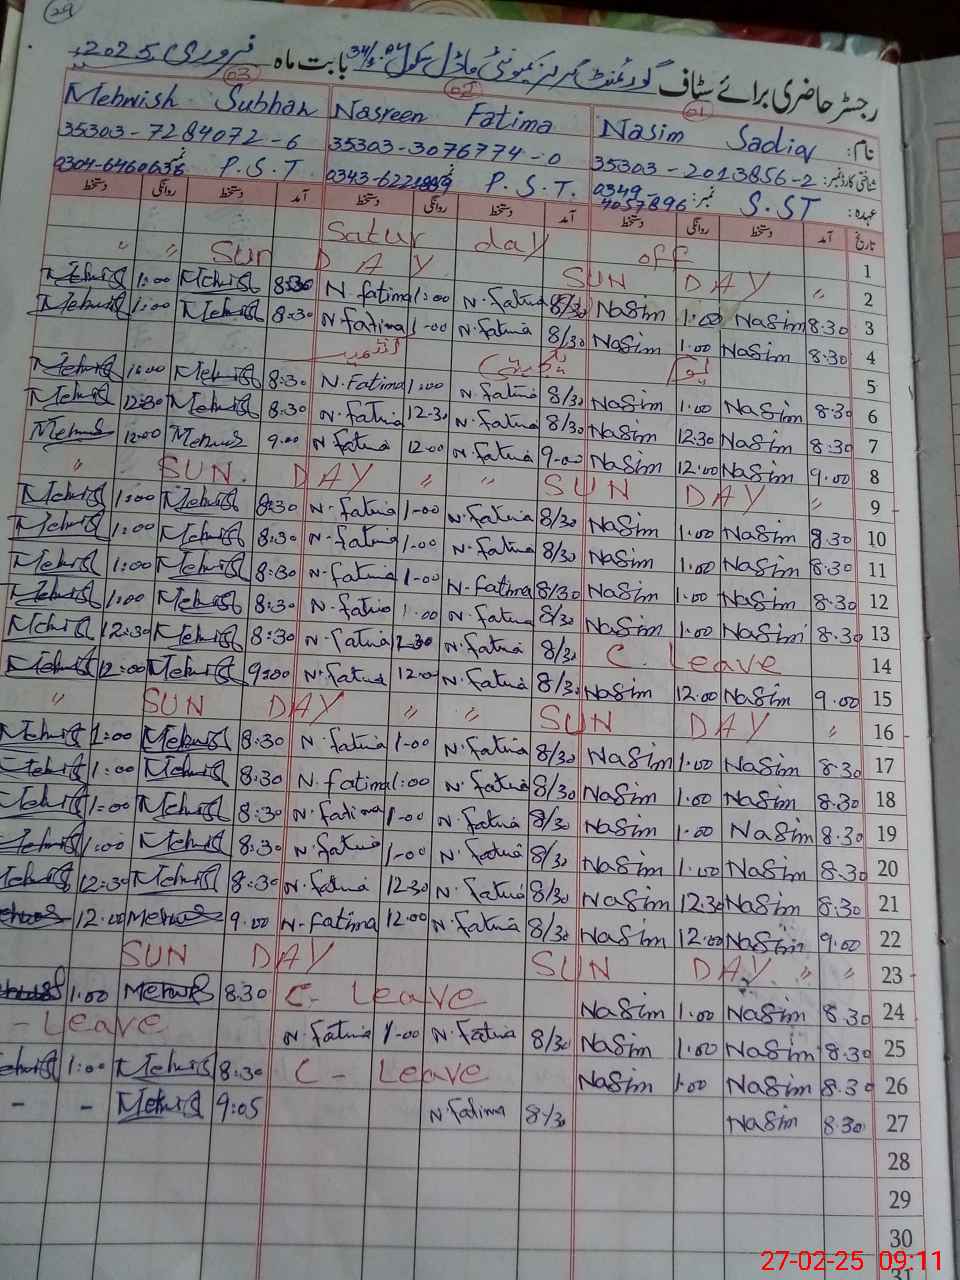 29
رجسٹر حاضری برائے سٹاف گورنمنٹ گرلز کمیونٹی ماڈل سکول 34/ بابت ماہ فروری 2025ء
03 02 01
Mehwish Subhan Nasreen Fatima Nasim Sadiq نام:
35303-7284072-6 35303-3076774-0 35303-2013856-2 شناختی کارڈ نمبر:
0304-6460636 نمبر P.S.T 0343-6221889 نمبر P.S.T. 0349 4057896 نمبر: S.ST عہدہ:
دستخط روانگی دستخط آمد دستخط روانگی دستخط آمد دستخط روانگی دستخط آمد تاریخ
Satur day off 1
" " Sun DAY SUN DAY " 2
Mehwish 1:00 Mehwish 8:30 N.fatima 1:00 N.fatima 8/30 NaSim 1.00 NaSim 8.30 3
Mehwish 1:00 Mehwish 8:30 N.fatima 1-00 N.fatima 8/30 NaSim 1.00 NaSim 8.30 4
5
Mehwish 1:00 Mehwish 8:30 N.Fatima 1:00 N.fatima 8/30 NaSim 1.00 NaSim 8.30 6
Mehwish 12:30 Mehwish 8:30 N.fatima 12-30 N.fatima 8/30 NaSim 12.30 NaSim 8.30 7
Mehwish 12:00 Mehwish 9:00 N.fatima 12.00 N.fatima 9-00 NaSim 12.00 NaSim 9.00 8
" SUN. DAY " " SUN DAY " 9
Mehwish 1:00 Mehwish 8:30 N.fatima 1-00 N.fatima 8/30 NaSim 1.00 NaSim 8.30 10
Mehwish 1:00 Mehwish 8:30 N.fatima 1-00 N.fatima 8/30 NaSim 1.00 NaSim 8.30 11
Mehwish 1:00 Mehwish 8:30 N.fatima 1-00 N.fatima 8/30 NaSim 1.00 NaSim 8.30 12
Mehwish 1:00 Mehwish 8:30 N.fatima 1.00 N.fatima 8/30 NaSim 1.00 NaSim 8.30 13
Mehwish 12:30 Mehwish 8:30 N.fatima 12.30 N.fatima 8/30 C. Leave 14
Mehwish 12:00 Mehwish 9:00 N.fatima 12.00 N.fatima 8/30 NaSim 12.00 NaSim 9.00 15
" SUN DAY " " SUN DAY " 16
Mehwish 1:00 Mehwish 8:30 N.fatima 1-00 N.fatima 8/30 NaSim 1.00 NaSim 8.30 17
Mehwish 1:00 Mehwish 8:30 N.fatima 1:00 N.fatima 8/30 NaSim 1.00 NaSim 8.30 18
Mehwish 1:00 Mehwish 8:30 N.fatima 1-00 N.fatima 8/30 NaSim 1.00 NaSim 8.30 19
Mehwish 1:00 Mehwish 8:30 N.fatima 1-00 N.fatima 8/30 NaSim 1.00 NaSim 8.30 20
Mehwish 12:30 Mehwish 8:30 N.fatima 12.30 N.fatima 8/30 NaSim 12.30 NaSim 8.30 21
Mehwish 12.00 Mehwish 9.00 N-fatima 12.00 N.fatima 8/30 NaSim 12.00 NaSim 9.00 22
SUN DAY SUN DAY " " 23
Mehwish 1.00 Mehwish 8.30 C- Leave NaSim 1.00 NaSim 8.30 24
- Leave N.fatima 1-00 N.fatima 8/30 NaSim 1.00 NaSim 8.30 25
Mehwish 1:00 Mehwish 8:30 C- Leave NaSim 1.00 NaSim 8.30 26
- - Mehwish 9:05 N.Fatima 8/30 NaSim 8.30 27
28
29
30
31
27-02-25 09:11